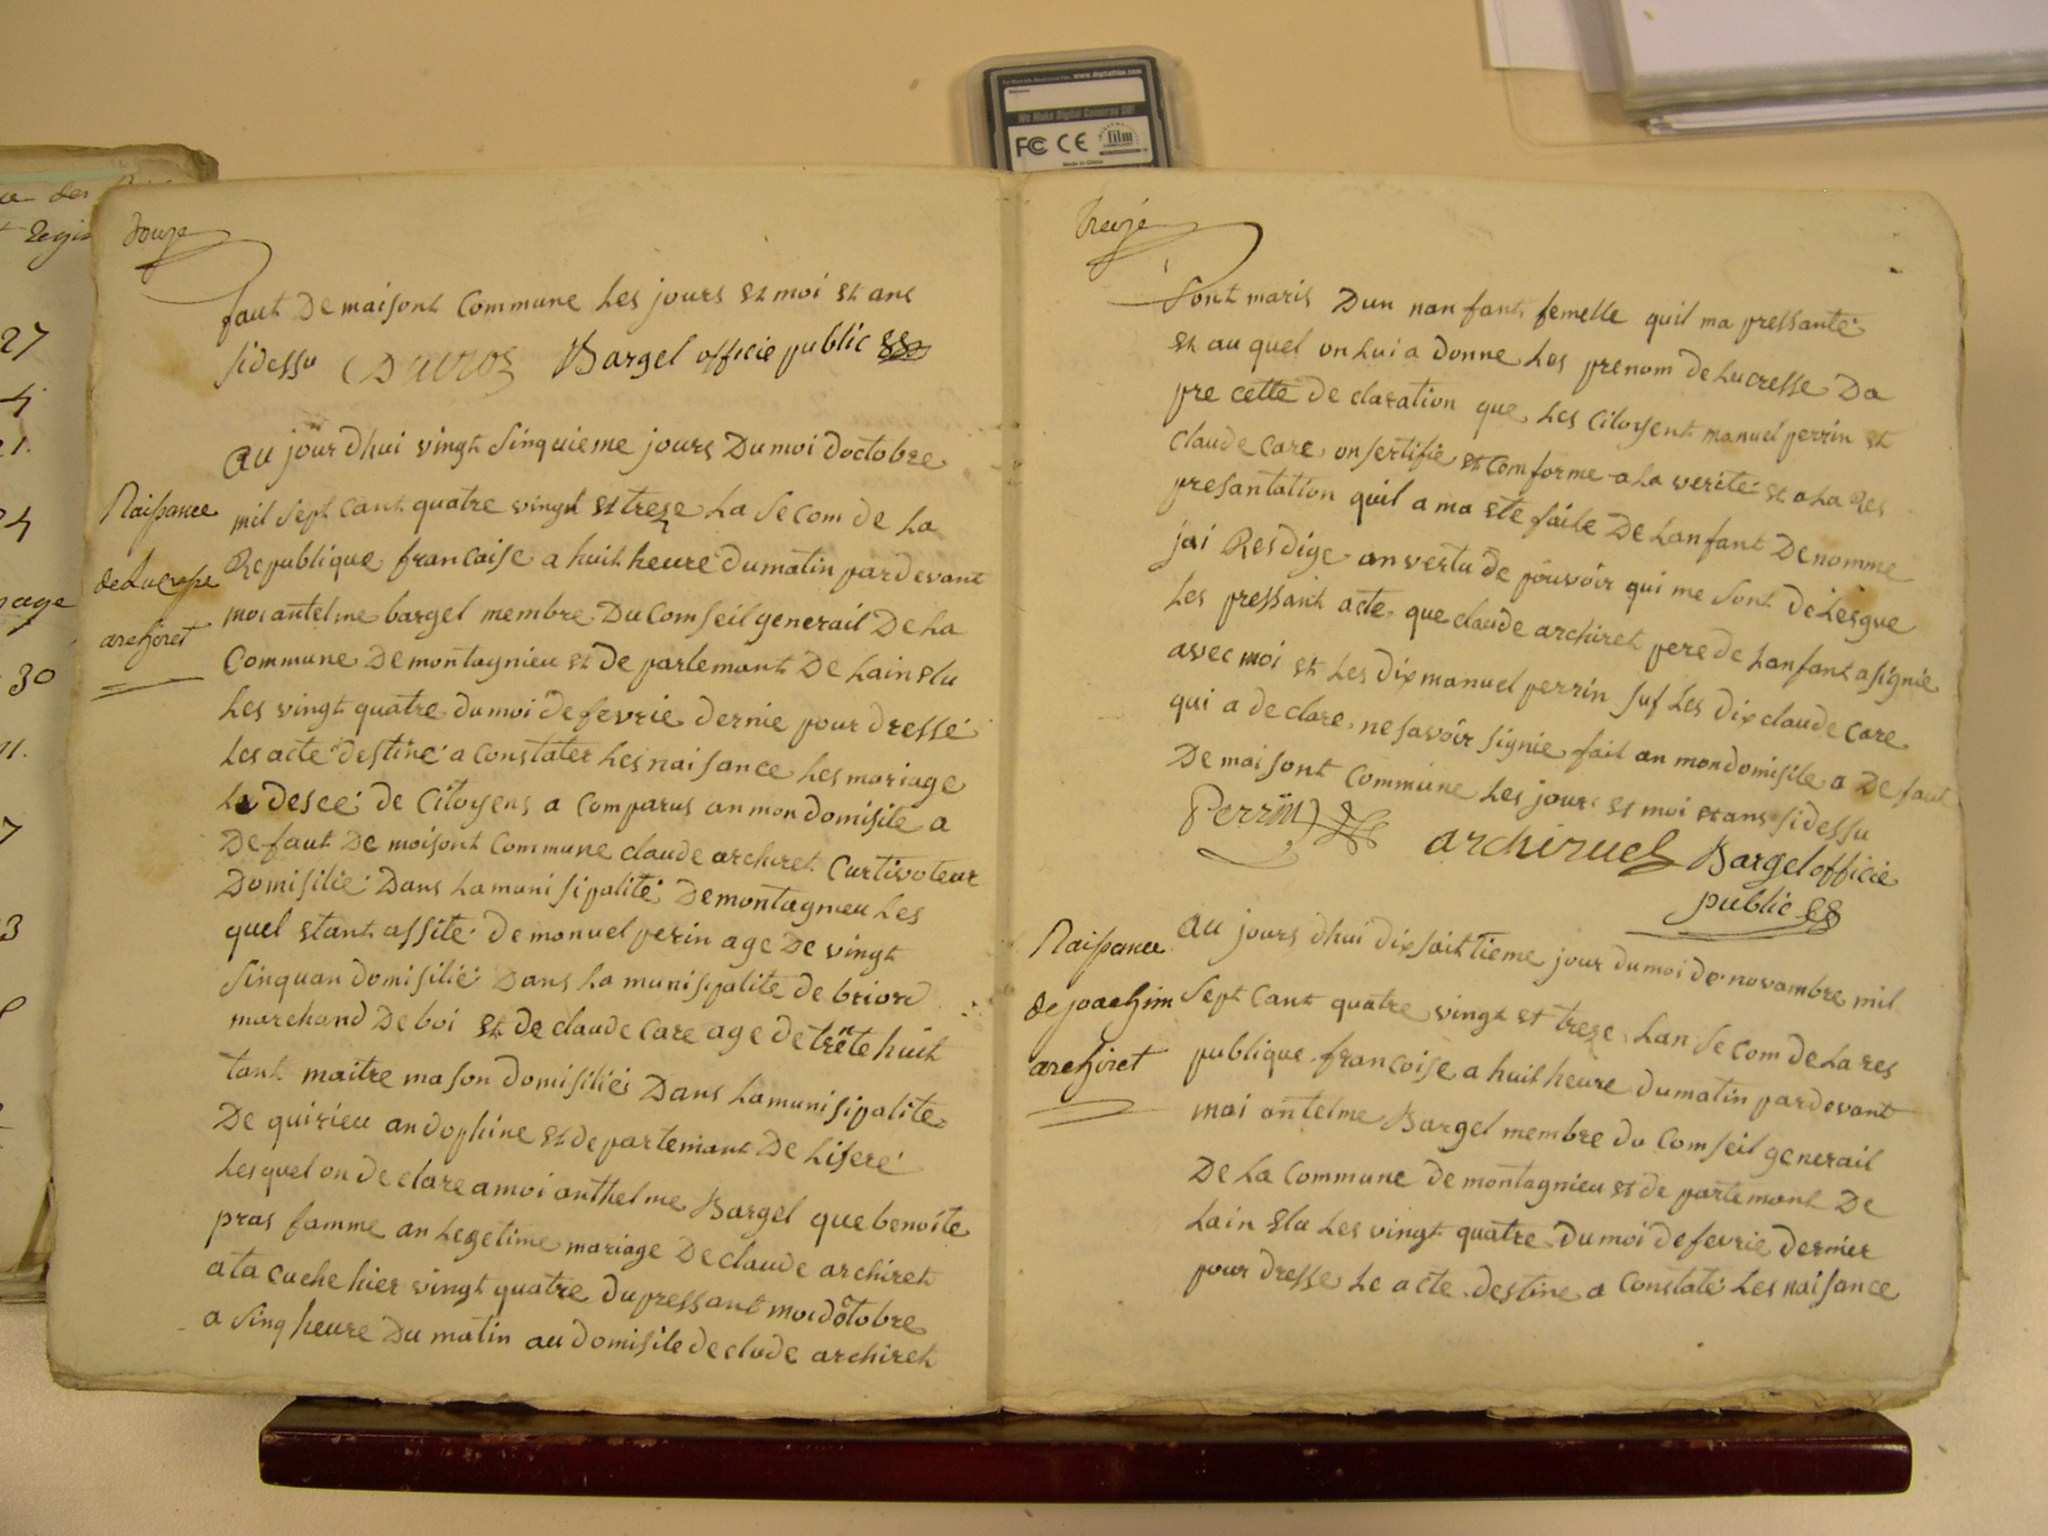 douze
faut De maisont Commune Les jours et moi et ans
sidessu Bargel officie public
Naissance
de Lucresse
archiret
au jour dhui vingt sinquieme jours Du moi doctobre
mil sept cant quatre vingt et treze La Se com de La
Republique francaise a huit heure du matin par devant
moi antelme bargel membre Du Comseil generail De La
Commune De montagnieu et de partemant De Lain elu
Les vingt quatre du moi de fevrie dernie pour dressé
Les acte destiné a Constater Les naisance Les mariage
Le deseé de Citoyens a Comparus an mon domisile a
De faut De moisont Commune claude archiret Curtivoteur
Domisilié Dans La muni sipalité De montagnieu Les
quel etant assité de manuel perin age De vingt
sinquan domisilié Dans La munisipalite de briord
marchand De boi et de claude Care age de trente huit
tant maitre mason domisiliés Dans La muni sipalite
De quirieu an dophine et de partemant De Liseré
Lesquel on de clare a moi anthelme Bargel que benoite
pras famme an Legetime mariage De claude archiret
a ta cuche hier vingt quatre du pressant moi doctobre
a sinq heure Du matin au domisile de clode archiret
treize
sont maris Dun nan fant femelle quil ma pressanté
et au quel on Lui a donne Les prenom de Lucresse Da
pre cette de claration que Les Citoyent manuel perrin et
claude Care on sertifie et Com forme a La verité et a La Res
presantation quil a ma ete faite De Lanfant De nomme
jai Resdige an vertu de pouvoir qui me sont de Lesgue
Les pressant acte que claude archiret pere de Lanfant a signie
avec moi et Les dix manuel perrin suf Les dix claude Care
qui a de clare ne savoir signie fait an mon domisile a De faut
De mai sont Commune Les jours et moi et ans sidessu
Perrin archiruel Bargel officie
public
Naissance
de joachim
archiret
au jours dhui dix sait tieme jour du moi de novambre mil
sept Cant quatre vingt et treze Lan Se com de La res
publique francoise a huit heure du matin par devant
moi antelme Bargel membre du Comseil generail
De La Commune de montagnieu et de partemant De
Lain elu Les vingt quatre du moi de fevrie dernier
pour dresse Le acte destine a Constaté Les naisance
27
30
www.digitalfilm.com
We Make Digital Cameras GO!
FC CE
film
Made in China